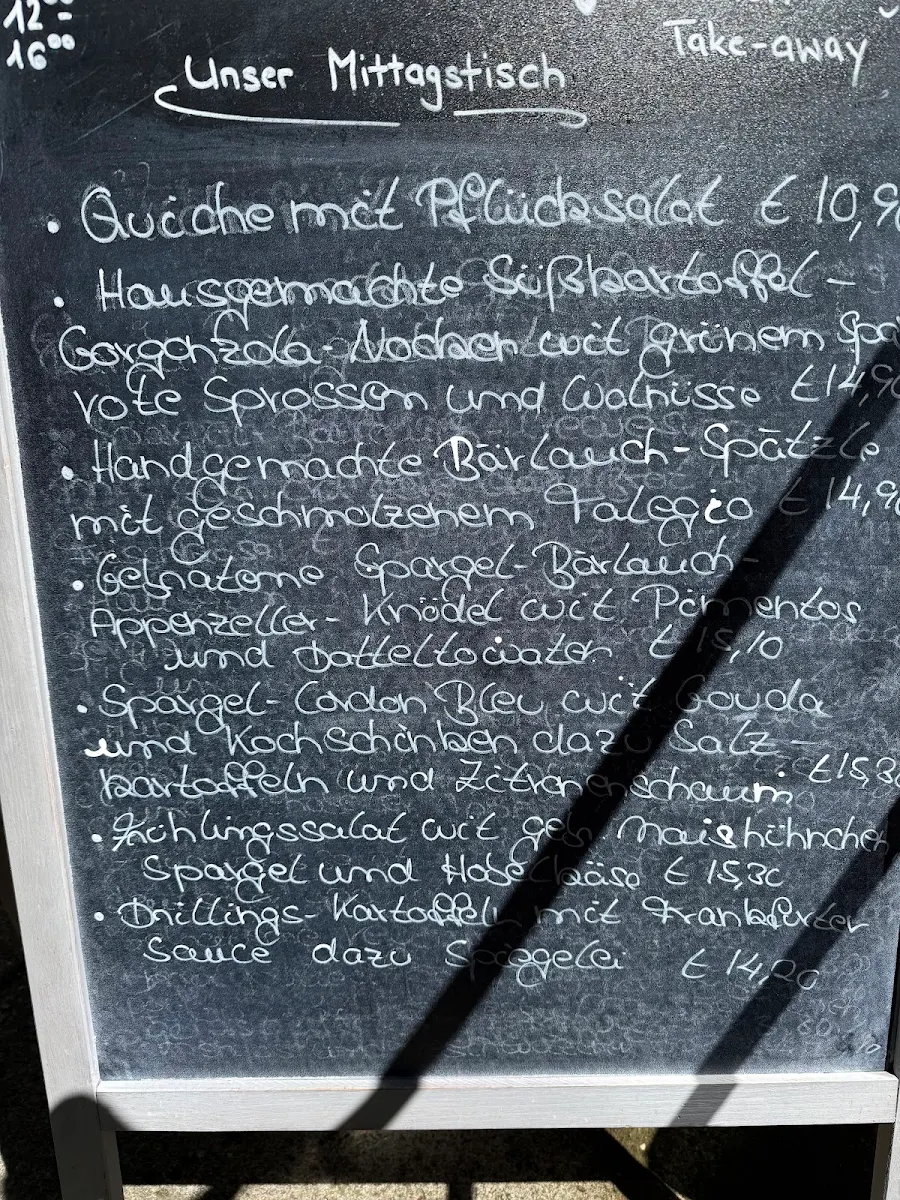 12⁰⁰ -
16⁰⁰
Take-away
Unser Mittagstisch
• Quiche mit Pflücksalat € 10,90
• Hausgemachte Süßkartoffel -
Gorgonzola- Nocken mit grünem Spa
rote Sprossen und Walnüsse €14,90
• Handgemachte Bärlauch-Spätzle
mit geschmolzenem Talegio € 14,90
• Gebratene Spargel-Bärlauch-
Appenzeller- Knödel mit Pimentos
und Datteltomaten € 15,10
• Spargel- Cordon Bleu mit Gouda
und Kochschinken dazu Salz -
kartoffeln und Zitronenschaum €15,30
• Frühlingssalat mit geb. Maishühnchen
Spargel und Hobelkäse € 15,30
• Drillings- Kartoffeln mit Frankfurter
Sauce dazu Spiegelei € 14,20